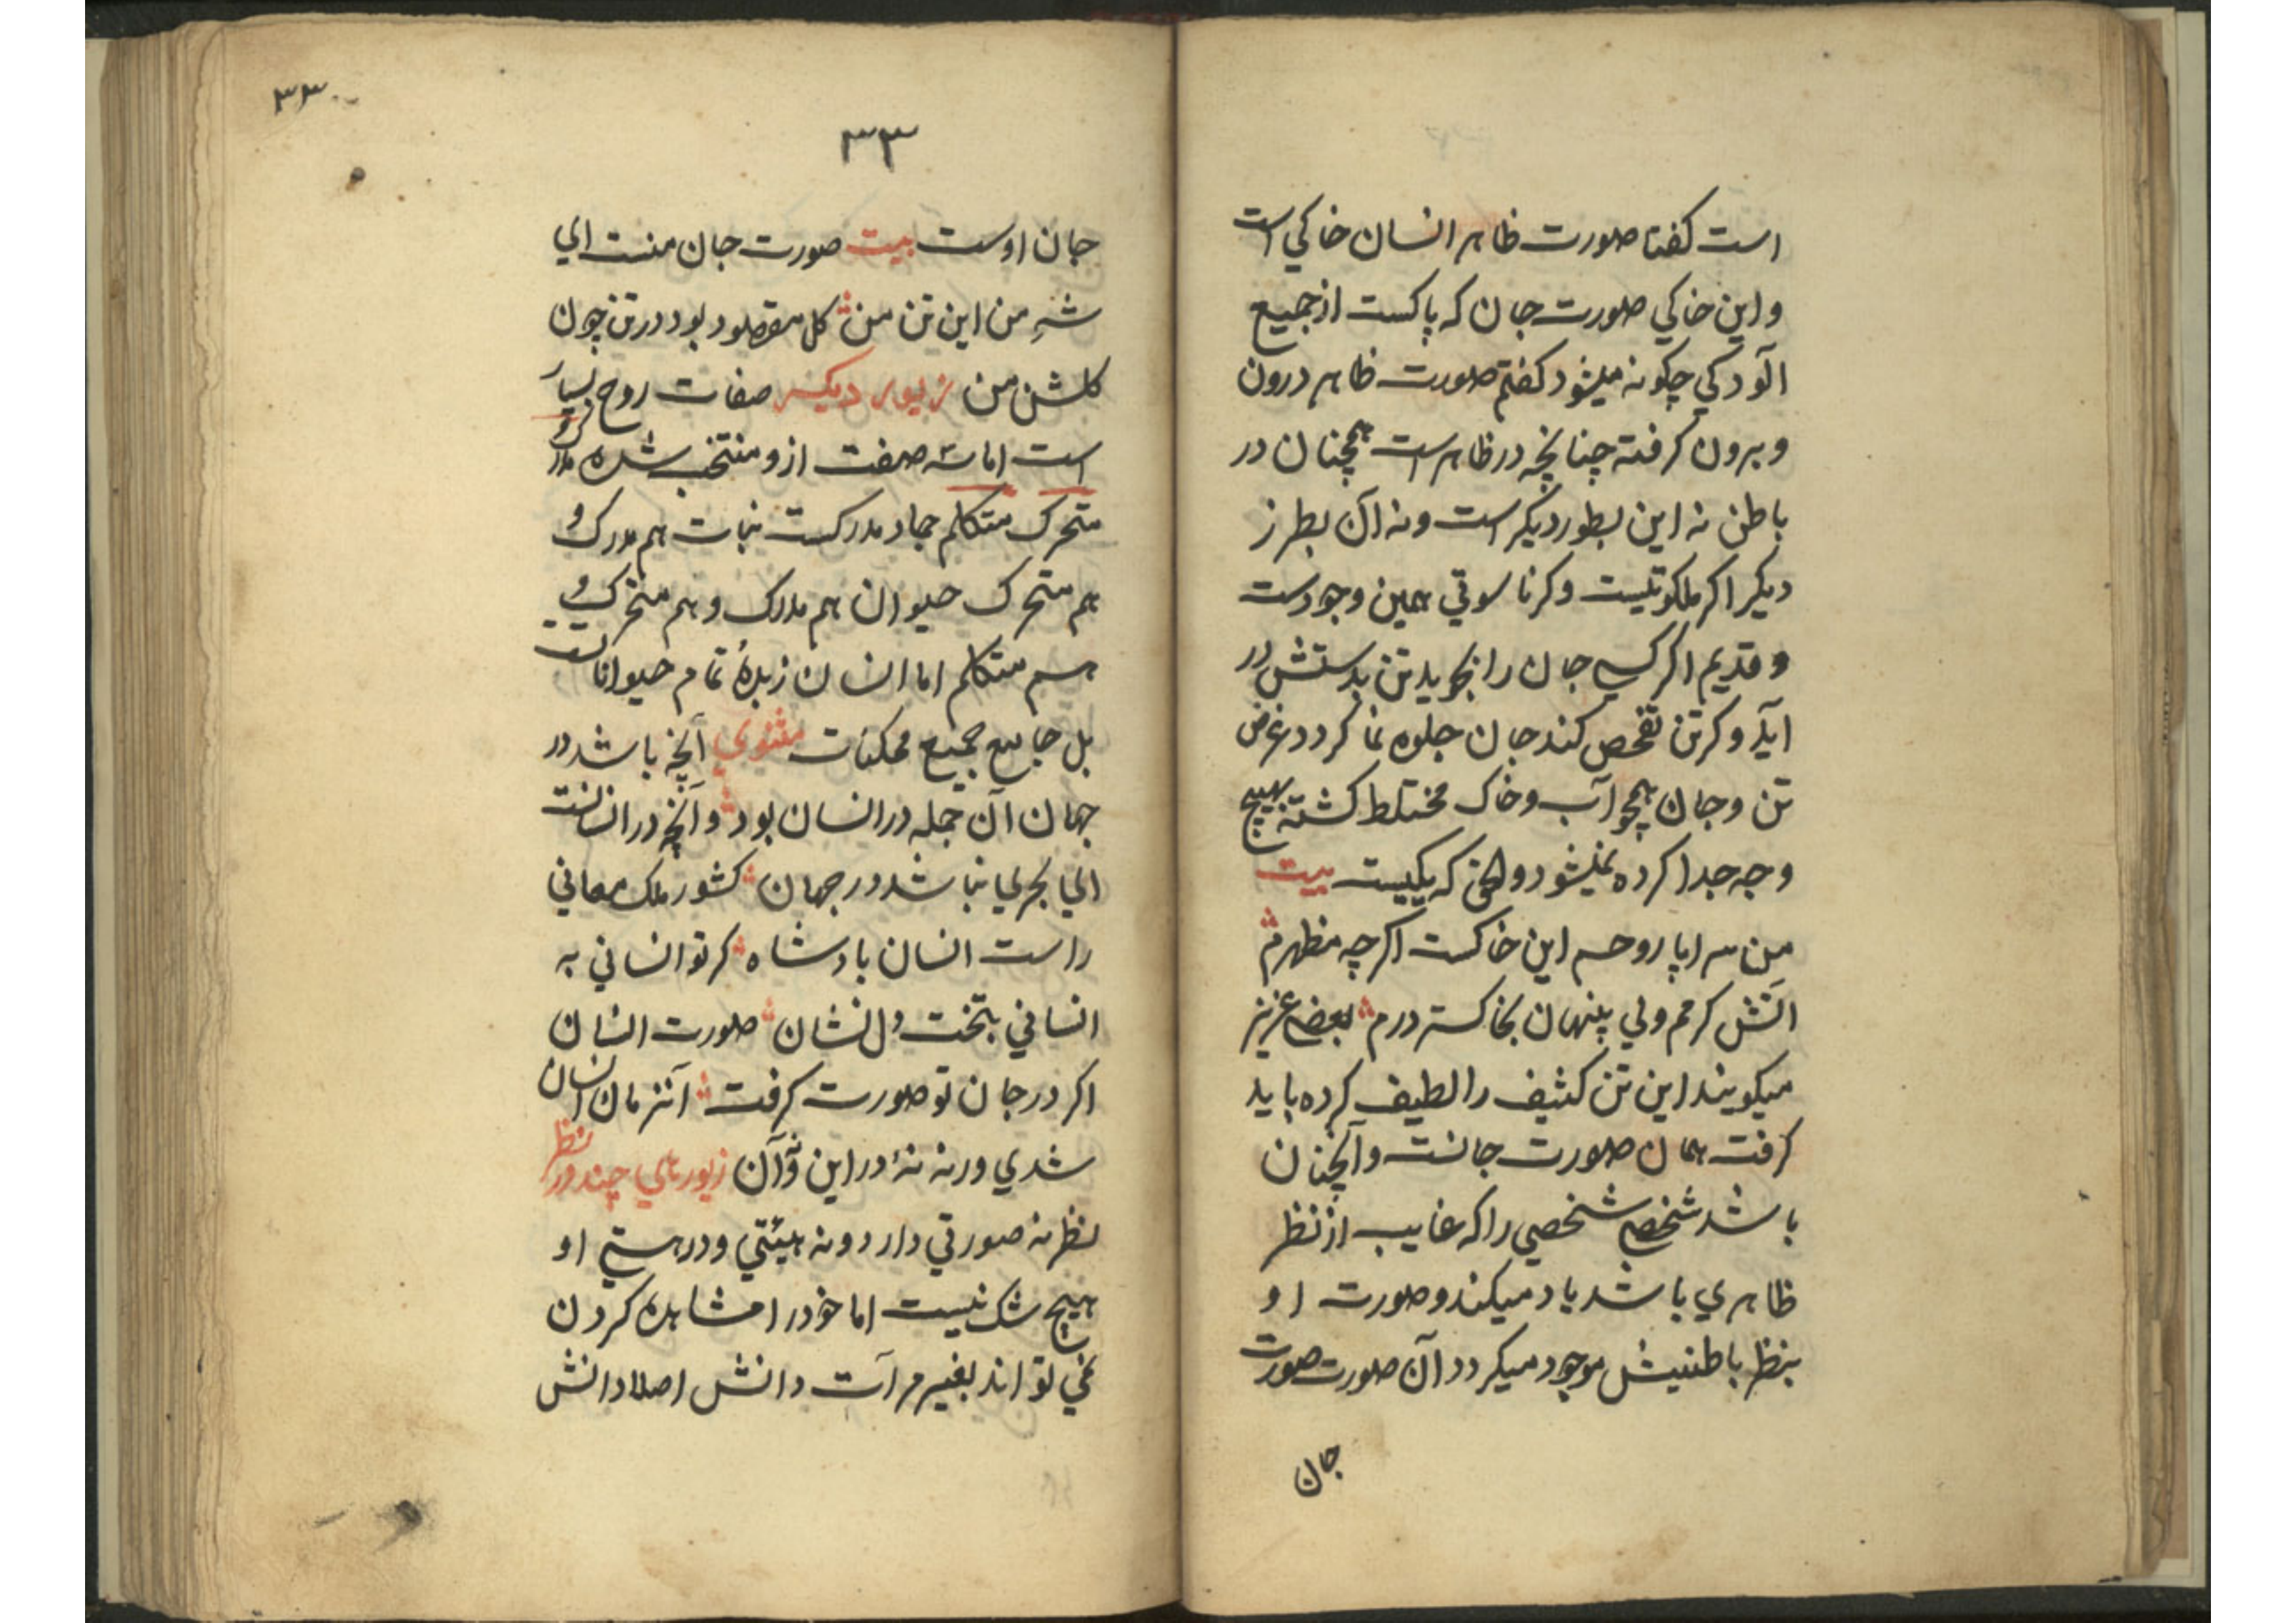 است کفتا صورت ظاهر انسان خاکی است
و این خاکی صورت جان که پاکست از جمیع
آلودکی چکونه میشود کفتم صورت ظاهر درون
و برون کرفته چنانچه در ظاهر است همچنان در
باطن نه این بطور دیکر است و نه آن بطرز
دیکر اکر ملکوتیست و کر ناسوتی همین وجودست
و قدیم اکر کسی جان را بجوید تن بدستش در
آید و کر تن تفحص کند جان جلوه نما کردد غرض
تن و جان همچو آب و خاک مختلط کشته بهیچ
وجه جدا کرده نمیشود که یکیست بیت
من سراپا روحم این خاکست اکرچه مظهرم
آتش کرمم ولی پنهان بخاکستر درم بعضے عزیز
میکویند این تن کثیف را لطیف کرده باید
کرفت همان صورت جانست و آنچنان
باشد شخصے شخصی را که غایب از نظر
ظاهری باشد یاد میکند و صورت او
بنظر باطنیش موجود میکردد آن صورت صورت
جان
۳۳
۳۳
جان اوست بیت صورت جان منست ای
شهِ من این تن من کل مقصود بود در تن چون
کلشن من زیور دیکر صفات روح بسیار
است اما سه صفت ازو منتخب شده مدرک و
متحرک متکلم جماد مدرکست نبات هم مدرک و
هم متحرک حیوان هم مدرک و هم متحرک و
هم متکلم اما انسان زبدهٔ تمام حیوانات
بل جامع جمیع ممکنات مثنوی آنچه باشد در
جهان آن جمله در انسان بود و آنچه در انسانست
نباشد در جهان کشور ملک معانی
راست انسان بادشاه کر تو انسانی به
انسانی بتخت دل نشان صورت انسان
اکر در جان تو صورت کرفت آنزمان انسان
شدی ورنه نهٔ در این و آن زیورهای چند در نظر
نظر نه صورتی دارد و نه هیئتی و در هستی او
هیچ شک نیست اما خود را مشاهده کردن
نمی تواند بغیر مرآت دانش اصلا دانش